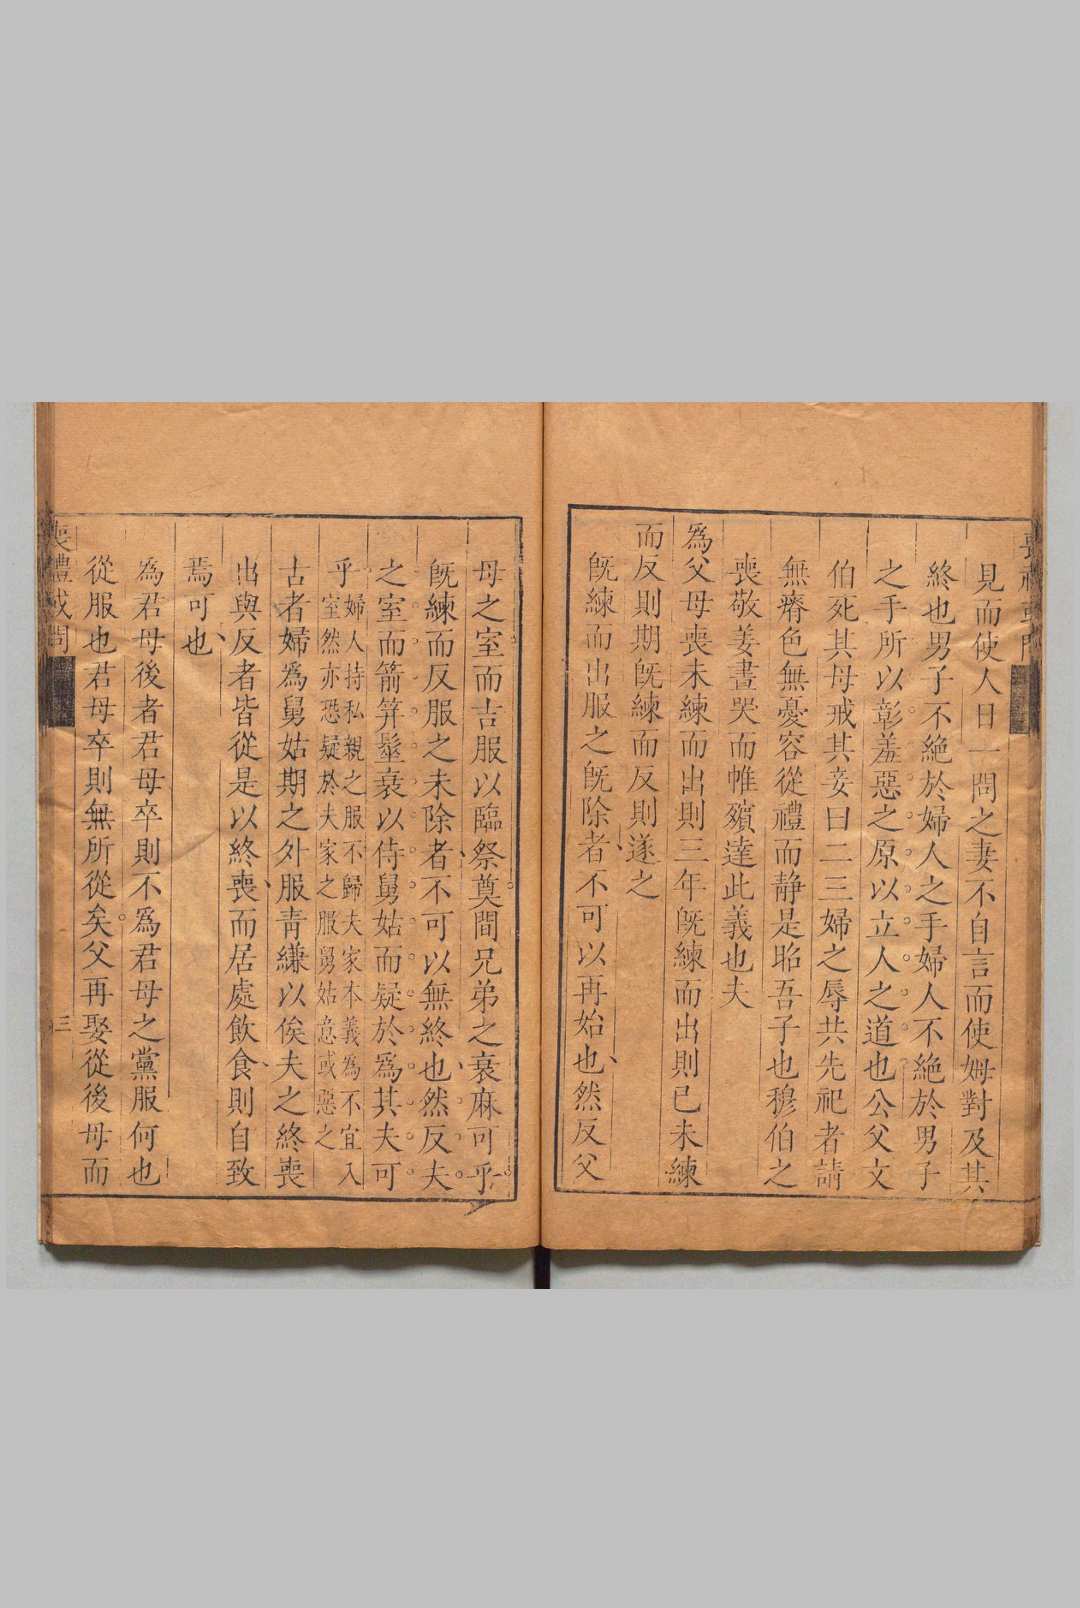 見而使人日一問之妻不自言而使姆對及其
終也男子不絕於婦人之手婦人不絕於男子
之手所以彰羞惡之原以立人之道也公父文
伯死其母戒其妾曰二三婦之辱共先祀者請
無瘠色無憂容從禮而靜是昭吾子也穆伯之
喪敬姜晝哭而帷殯達此義也夫
為父母喪未練而出則三年旣練而出則已未練
而反則期旣練而反則遂之
旣練而出服之旣除者不可以再始也然反父
母之室而吉服以臨祭奠間兄弟之衰麻可乎
旣練而反服之未除者不可以無終也然反夫
之室而箭笄髽衰以侍舅姑而疑於爲其夫可
乎婦人持私親之服不歸夫家本義為不宜入
室然亦恐疑於夫家之服舅姑意或惡之
古者婦爲舅姑期之外服靑縑以俟夫之終喪
出與反者皆從是以終喪而居處飲食則自致
焉可也
為君母後者君母卒則不為君母之黨服何也
從服也君母卒則無所從矣父再娶從後母而
喪禮或問
三